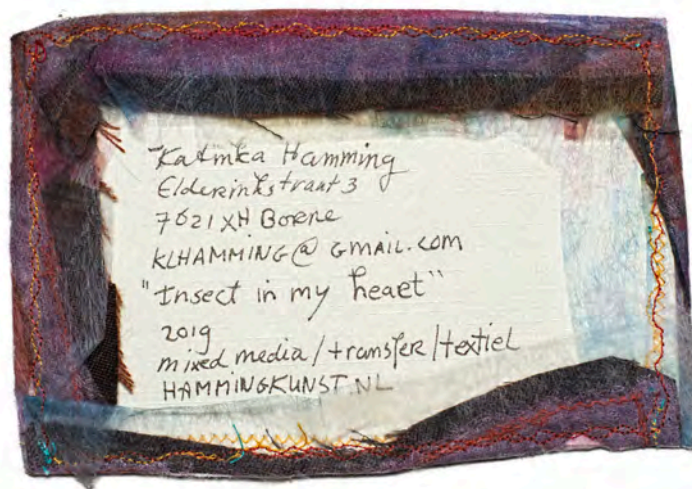 Katinka Hamming
Elderinkstraat 3
7621 XH Borne
KLHAMMING@GMAIL.COM
"Insect in my heart"
2019
mixed media/transfer/textiel
HAMMINGKUNST.NL